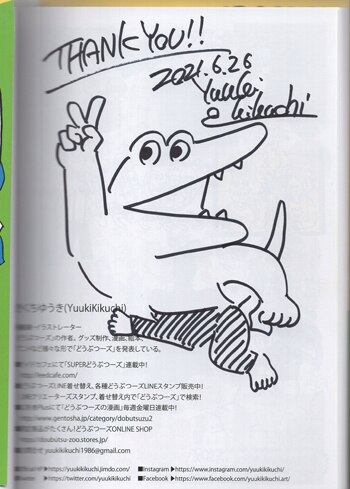 THANK YOU!!
2021.6.26
Yuuki
Kikuchi
きくちゆうき(YuukiKikuchi)
イラストレーター
「どうぶつーズ」の作者。グッズ制作、漫画、絵本、
など様々な形で「どうぶつーズ」を発表している。
カフェにて「SUPERどうぶつーズ」連載中!
http://feelcafe.com/
どうぶつーズLINE着せ替え、各種どうぶつーズLINEスタンプ販売中!
LINEクリエーターズスタンプ、着せ替え内で「どうぶつーズ」で検索!
にて「どうぶつーズの漫画」毎週金曜日連載中!
www.gentosha.jp/category/dobutsuzu2
商品がたくさん!どうぶつーズONLINE SHOP
://doubutsu-zoo.stores.jp/
yuukikikuchi1986@gmail.com
▶https://yuukikikuchi.jimdo.com/ ■Instagram ▶https://www.instagram.com/yuukikikuchi/
▶https://twitter.com/yuukikikuchi ■Facebook ▶https://www.facebook.com/yuukikikuchi.art/